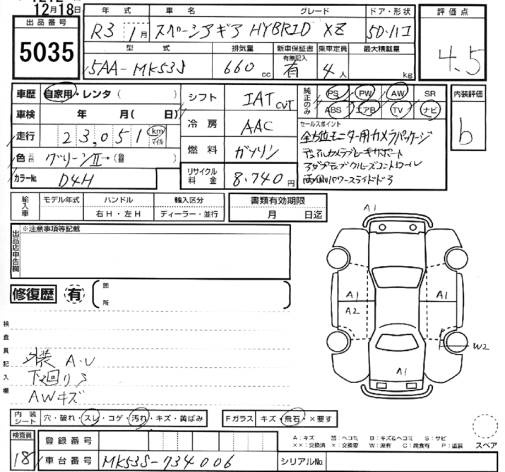 12月18日
出品番号
5035
年式 車名 グレード ドア・形状
R3年1月 スペーシアギア HYBRID XZ 5D・ハコ
評価点
4.5
型式 排気量 新車保証書 乗車定員 最大積載量
有無記入
5AA-MK53S 660cc 有 4人 kg
車歴 自家用・レンタ( )
車検 年 月( )
走行 23,051 km マイル
色 グリーンII→(
カラーNo. D4H
シフト IAT CVT
冷房 AAC
燃料 ガソリン
リサイクル料金 8,740円
純正のみ
PS PW AW SR
ABS エアB TV ナビ
セールスポイント
全方位モニター用カメラパッケージ
デュアルカメラブレーキサポート
アダプティブクルーズコントロール
両側パワースライドドア
内装評価
b
輸入車 モデル年式 ハンドル 輸入区分
右H・左H ディーラー・並行
書類有効期限
月 日迄
出品店申告欄
※注意事項等記載
修復歴 有
箇所
検査員記入欄
外装 A.U
下廻りS
AWキズ
A1
A1
A2
A1
W2
A1
スペア
内装シート 穴・破れ・スレ・コゲ・汚れ・キズ・黄ばみ
Fガラス キズ・飛石・×要す
検査員
18
登録番号
車台番号 MK53S-734006
シリアルNo.
A:キズ U:ヘコミ B:キズ&ヘコミ S:サビ
XX:交換済 X:要交換 W:波有 C:腐食有 P:塗装